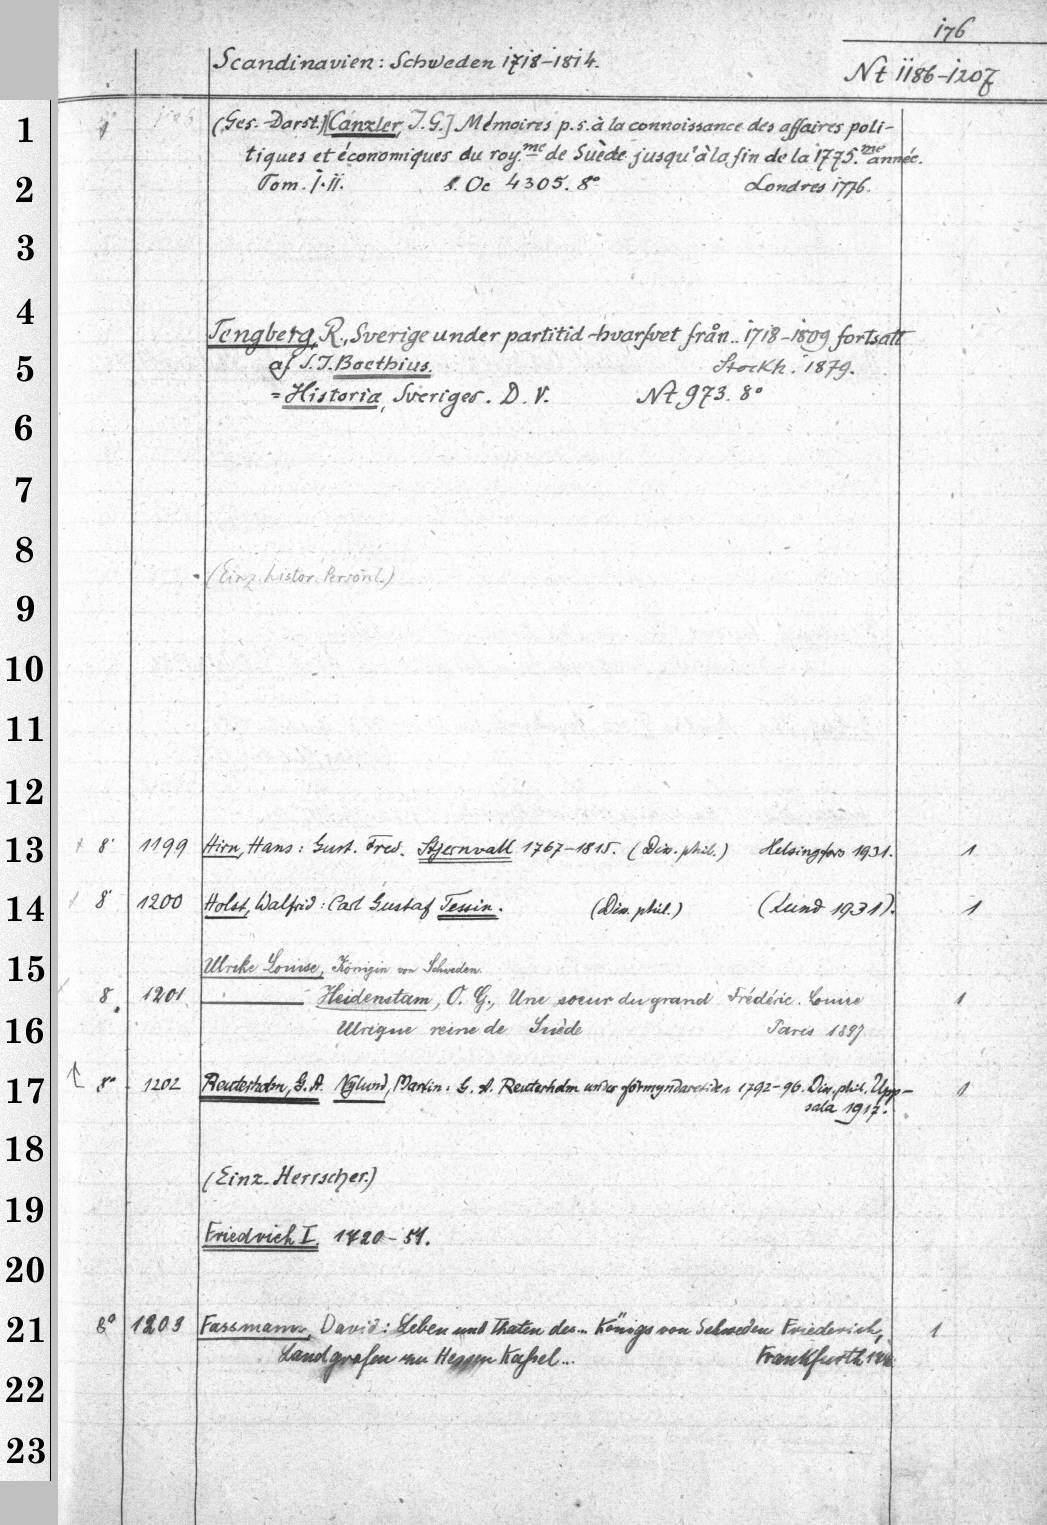 176
Scandinavien: Schweden 1718-1814.
Nt 1186-1207
1
(Ges.-Darst.) [Canzler, J. G.] Mémoires p. s. à la connoissance des affaires poli-
tiques et économiques du roy.me de Suède jusqu'à la fin de la 1775.me année.
2
Tom. I. II. s. Oc 4305. 8° Londres 1776.
3
4
Tengberg, R., Sverige under partitid-hvarfvet från.. 1718-1809 fortsatt
5
af S. J. Boethius. Stockh. 1879.
= Historia, Sveriges. D. V. Nt 973. 8°
6
7
8
(Einz. histor. Persönl.)
9
10
11
12
13 8° 1199 Hirn, Hans: Gust. Fred. Stjernvall 1767-1815. (Diss. phil.) Helsingfors 1931. 1
14 8° 1200 Holst, Walfrid: Carl Gustaf Tessin. (Diss. phil.) (Lund 1931). 1
15 Ulrike Louise, Königin von Schweden.
8 1201 Heidenstam, O. G., Une soeur du grand Frédéric. Louise 1
16 Ulrique reine de Suède Paris 1897
17 8° 1202 Reuterholm, G. A. Nylund, Martin: G. A. Reuterholm under förmyndaretiden 1792-96. Diss. phil. Upp- 1
sala 1917.
18
(Einz. Herrscher.)
19
Friedrich I. 1720-51.
20
21 8° 1203 Fassmann, David: Leben und Thaten des... Königs von Schweden Friederich, 1
Landgrafen zu Hessen Kassel... Frankfurth
22
23